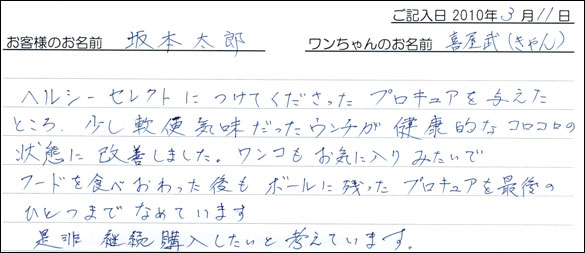 ご記入日 2010年 3 月 11 日
お客様のお名前 坂本太郎 ワンちゃんのお名前 喜屋武(きゃん)
ヘルシーセレクトにつけてくださった プロキュアを与えた
ところ、少し軟便気味だったウンチが 健康的なコロコロの
状態に改善しました。ワンコもお気に入りみたいで
フードを食べおわった後も ボールに残った プロキュアを最後の
ひとつまで なめています
是非 継続購入したいと考えています。